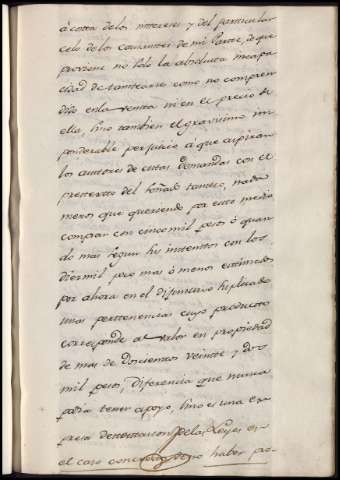 á costa de los intereses y del particular
celo de los causantes de mi Parte, de que
proviene no solo la absoluta incapa
cidad de tantearse como no compren
dido en la venta ni en el precio de
ella, sino tambien el gravisimo im
ponderable perjuicio á que aspiran
los autores de estas Demandas con el
pretexto del soñado tanteo, nada
menos que queriendo por este medio
comprar con cinco mil pesos ó quan
do mas segun sus intentos con los
diez mil poco mas ó menos estimados
por ahora en el disfrute
unas pertenencias cuyo producto
corresponde al valor en propiedad
de mas de Doscientos veinte y dos
mil pesos, diferencia que nunca
podia tener apoyo, sino es una ex
presa detestacion de las Leyes en
el caso de no haber pe-